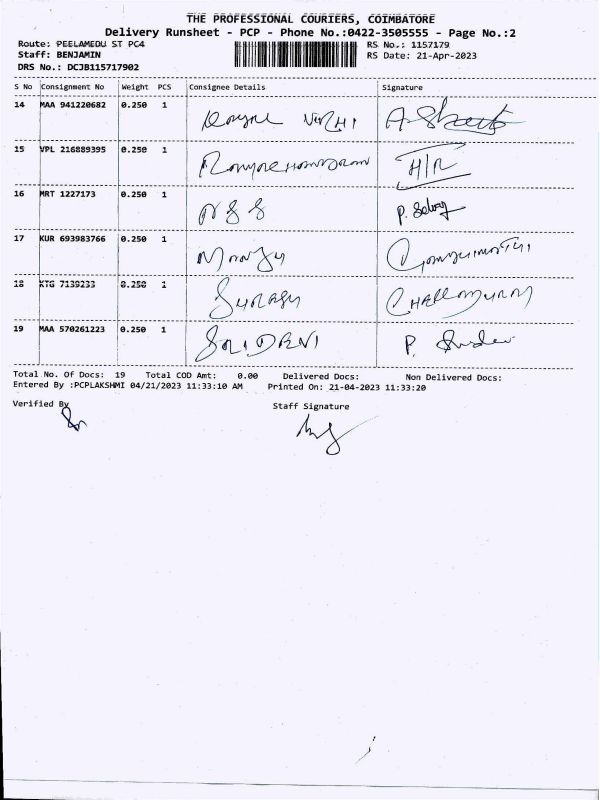 THE PROFESSIONAL COURIERS, COIMBATORE
Delivery Runsheet - PCP - Phone No.:0422-3505555 - Page No.:2
Route: PEELAMEDU ST PC4 RS No.: 1157179
Staff: BENJAMIN RS Date: 21-Apr-2023
DRS No.: DCJB115717902
S No Consignment No Weight PCS Consignee Details Signature
14 MAA 941220682 0.250 1
15 VPL 216889395 0.250 1 H/R
16 MRT 1227173 0.250 1 P. Selvag
17 KUR 693983766 0.250 1 Manju
18 KTG 7139233 0.250 1
19 MAA 570261223 0.250 1 SRIDEVI P.
Total No. Of Docs: 19 Total COD Amt: 0.00 Delivered Docs: Non Delivered Docs:
Entered By :PCPLAKSHMI 04/21/2023 11:33:10 AM Printed On: 21-04-2023 11:33:20
Verified By Staff Signature